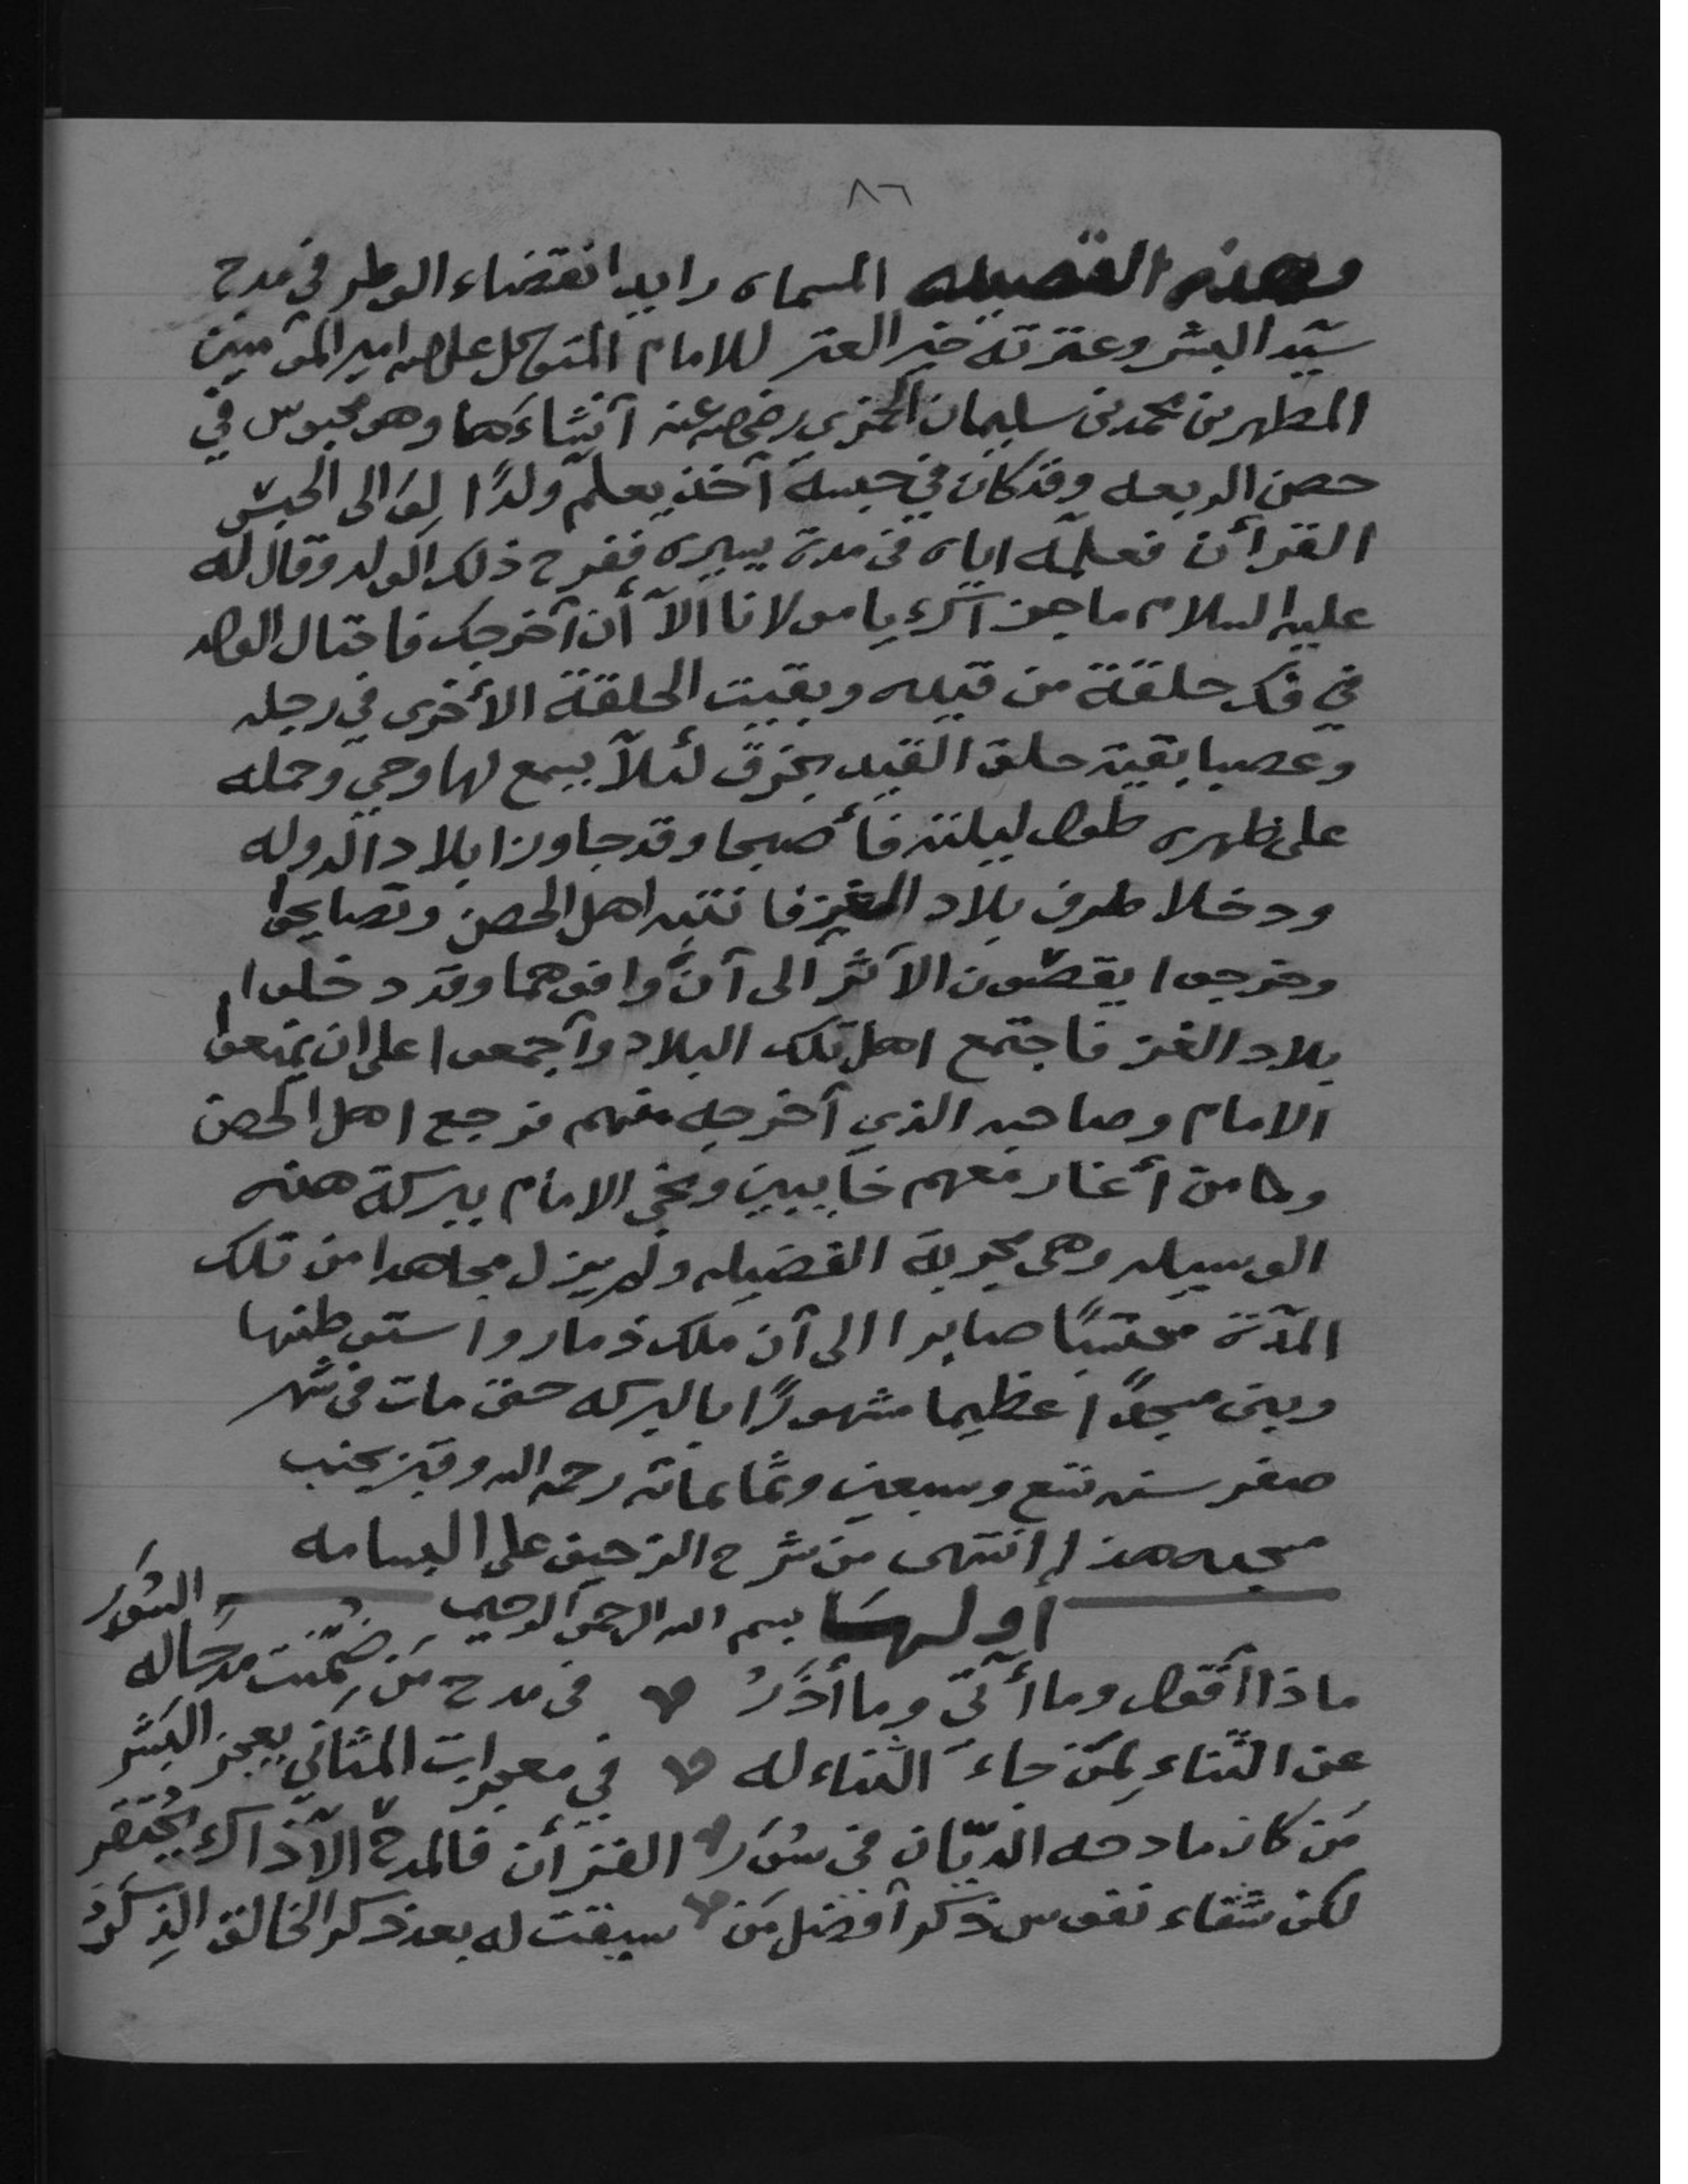 ٨٦
وهذه القصيده المسماه رايد انقضاء الوطر في مدح
سيّد البشر وعترته خير العتر للامام المتوكل على الله امير المؤمنين
المطهر بن محمد بن سليمان الحمزي رضي الله عنه أنشاءَها وهو محبوس في
حصن الربعه وقد كان في حبسه أخذ يعلم ولدًا لِوَالى الحبس
القرأن فعلمه اياه في مدة يسيره ففرح ذلك الولد وقال له
عليه السلام ما جزآئك يا مولانا الآ أن أخرجك فاحتال الولد
في فك حلقة من قيده وبقيت الحلقة الأخرى في رجله
وعصبا بقية حلق القيد بخرق لئلآ يسمع لها وحي وحمله
على ظهره طول ليلته فأصبحا وقد جاوزا بلاد الدوله
ودخلا طرف بلاد الغز فانتبه اهل الحصن وتصايحوا
وخرجوا يقصّون الأثر الى أن وافوهما وقد دخلوا
بلاد الغز فاجتمع اهل تلك البلاد وأجمعوا على ان يمنعوا
الامام وصاحبه الذي أخرجه منهم فرجع اهل الحصن
ومن أغار معهم خايبين ونجى الامام ببركة هذه
الوسيله وهي مجربة الفضيله ولم يزل مجاهدا من تلك
المدّة محتسبًا صابرا الى أن ملك ذمار واستوطنها
وبنى مسجدًا عظيما مشهورًا بالبركه حتى مات في شهر
صفر سنه تسع وسبعين وثمانمائه رحمه الله وقبر بجنب
مسجده هذا انتهى من شرح الزحيف على البسامه
أولـها بسم الله الرحمن الرحيم
ماذا أقول وما أتي وما أذَرُ في مدح مَن ضُمِّنت مدحًا له السُّوَرُ
عن الثناءِ لِمَن جاءَ الثناء له في معجزات المثاني يعجز البَشَر
مَن كان مادحه الديّان في سُوَر القرأن فالمدح الآ ذاك يُحتَقَر
لكن شفاء نفوس ذكر أفضل مَن سيقت له بعد ذكر الخالق الذِكَرُ